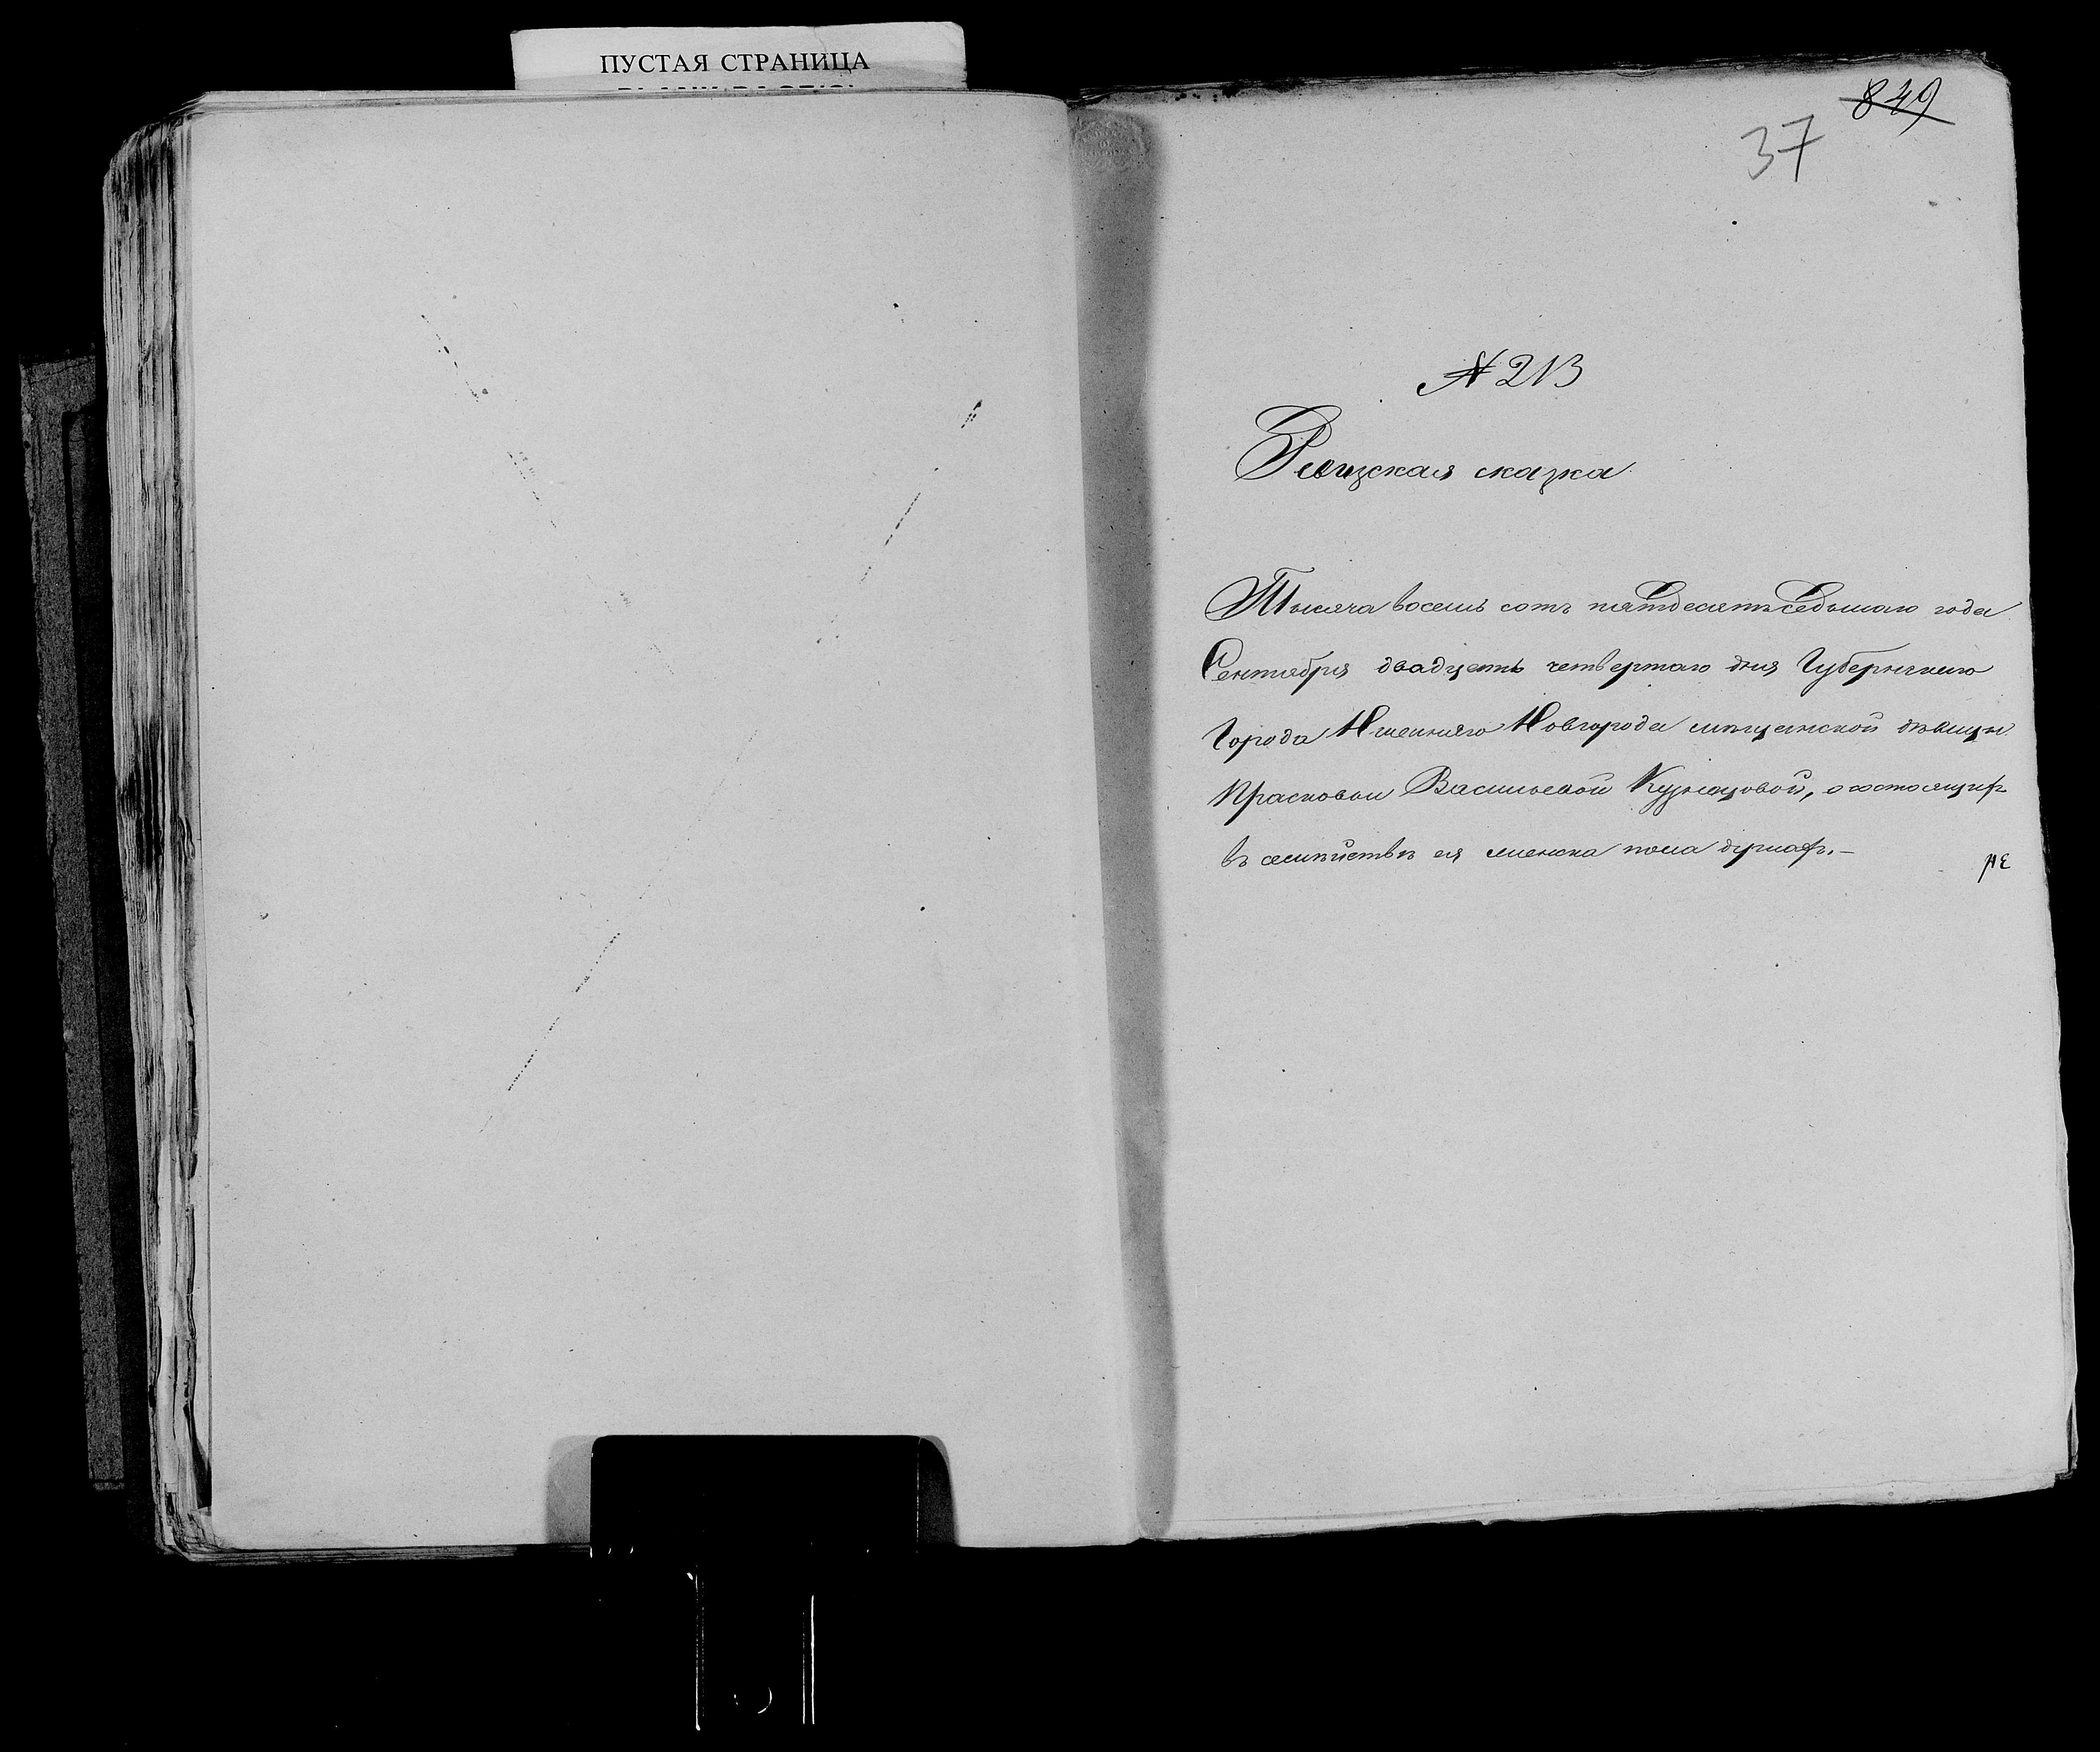 ПУСТАЯ СТРАНИЦА
849
37
№ 213
Ревизская сказка
Тысяча восемь сотъ пятдесятъ седьмаго года
Сентября двадцать четвертаго дня Губернскаго
Города Нижняго Новгорода мѣщанской дѣвицы
Прасковьи Васильевой Кузнецовой, о состоящихъ
въ семѣйствѣ ея женска пола душахъ.—